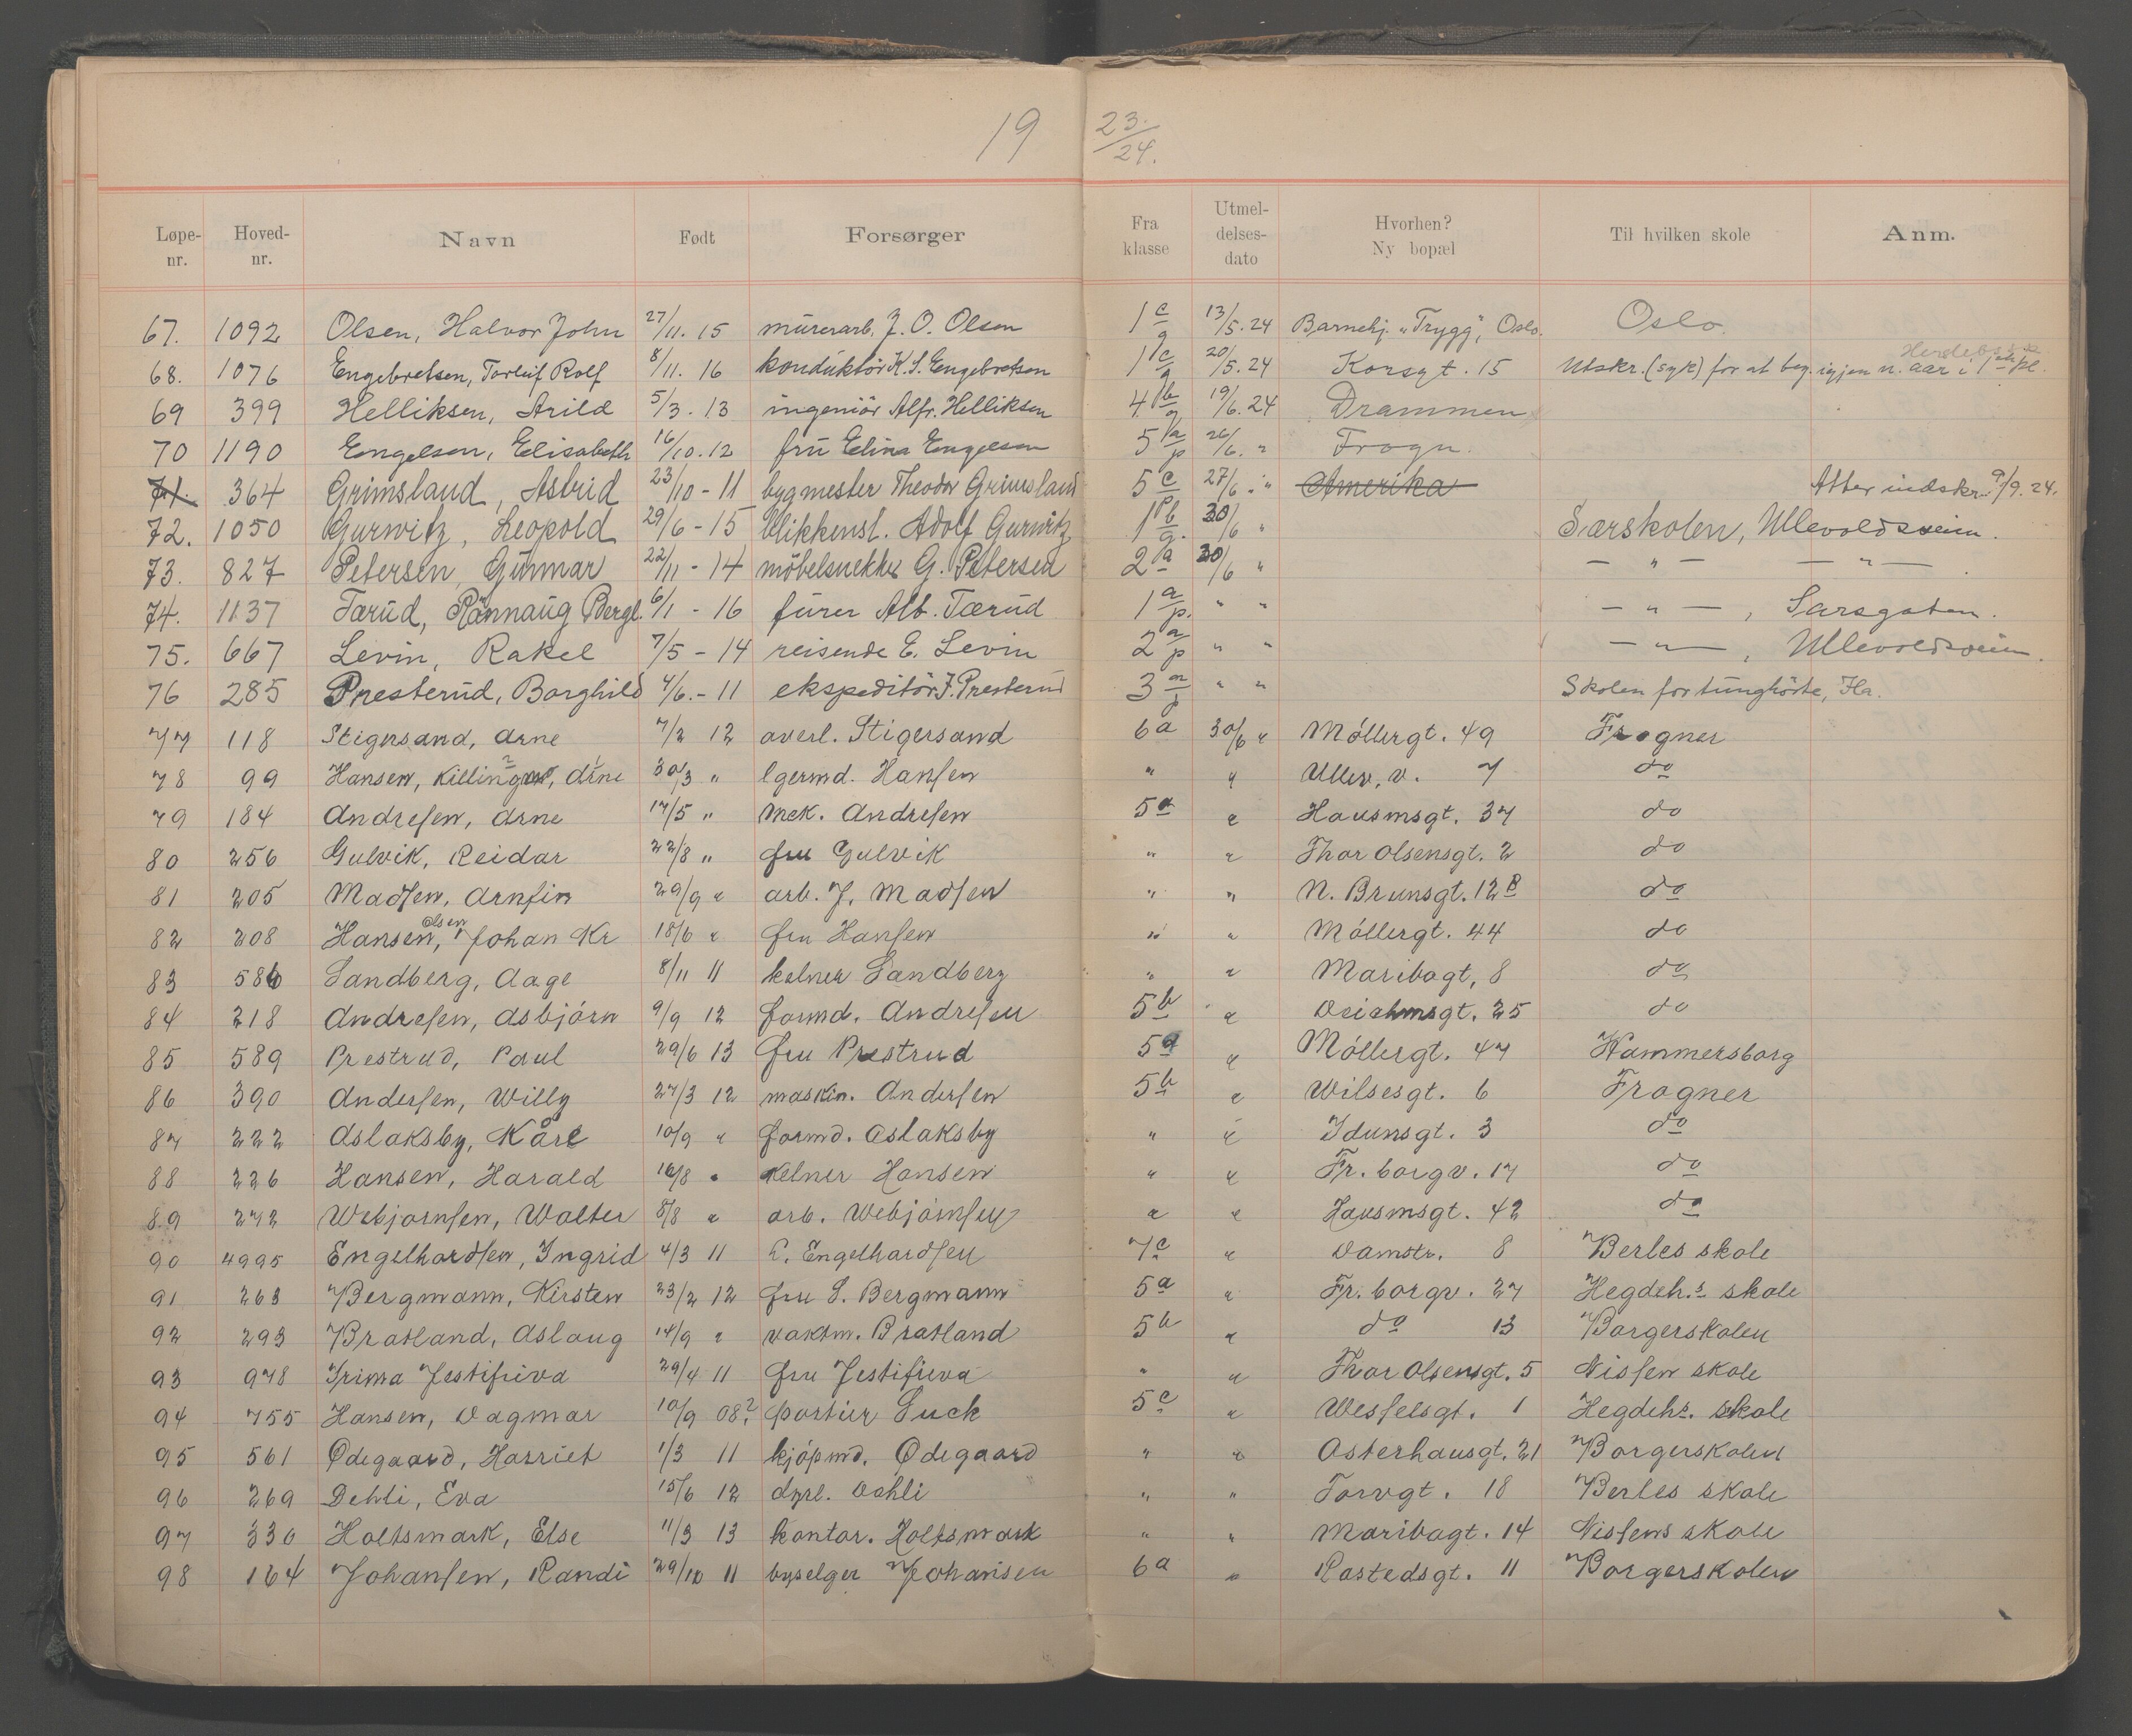 19 23/24.
Løpe-nr. Hoved-nr. Navn Født Forsørger Fra klasse Utmeldelsesdato Hvorhen? Ny bopæl Til hvilken skole Anm.
67. 1092 Olsen, Halvor John 27/11. 15 murerarb. J. O. Olsen 1 c/g 13/5.24 Barnehj. „Trygg", Oslo. Oslo.
68. 1076 Engebretsen, Torleif Rolf 8/11. 16 konduktör K. S. Engebretsen 1 c/g 20/5.24 Korsgt. 15 Utskr. (syk) for at beg. igjen n. aar i 1ste kl.
69 399 Helliksen, Arild 5/3. 13 ingeniör Alfr. Helliksen 4 b/g 19/6.24 Drammen
70 1190 Engelsen, Elisabeth 16/10.12 fru Elina Engelsen 5 a/p 26/6. " Frogn.
71. 364 Grimsland, Astrid 23/10 - 11 bygmester Theodor Grimsland 5 c/p 27/6. " Amerika Atter indskr. 9/9. 24.
72. 1050 Gurwitz, Leopold 29/6 - 15 blikkensl. Adolf Gurwitz 1 b/g. 30/6 " Særskolen, Ullevoldsveien.
73. 827 Petersen, Gunnar 22/11 - 14 möbelsnekker G. Petersen 2 a 30/6 " — " — — " —
74. 1137 Tærud, Rannaug Bergl. 6/1 - 16 furer Alb. Tærud 1 a/p. " " — " — , Sarsgaten.
75. 667 Levin, Rakel 7/5 - 14 reisende E. Levin 2 a/p " " — " — , Ullevoldsveien.
76 285 Presterud, Borghild 4/6. - 11 ekspeditör J. Presterud 3 a/p " " Skolen for tunghörte, Ha.
77 118 Stigersand, Arne 7/2 12 overl. Stigersand 6a 30/6 " Möllergt. 49 Frogner
78 99 Hansen, Killingmo, Arne 30/3 " lgermd. Hansen " " Ullev. v. 7 do
79 184 Andresen, Arne 17/5 " mek. Andresen 5a " Hausmsgt. 37 do
80 256 Gulvik, Reidar 22/8 " fru Gulvik " " Thor Olsensgt. 2 do
81 205 Madsen, Arnfin 29/9 " arb. J. Madsen " " N. Brunsgt. 12 B do
82 208 Hansen, Olsen Johan Kr 18/6 " fru Hansen " " Möllergt. 44 do
83 586 Sandberg, Aage 8/11 11 kelner Sandberg " " Maribogt, 8 do
84 218 Andresen, Asbjörn 9/9 12 formd. Andresen 5b " Deichmsgt. 25 do
85 589 Prestrud, Paul 29/6 13 fru Prestrud 5a " Möllergt. 47 Hammersborg
86 390 Andersen, Willy 27/3 12 maskin. Andersen 5b " Wilsesgt. 6 Frogner
87 222 Aslaksby, Kåre 10/9 " formd. Aslaksby " " Idunsgt. 3 do
88 226 Hansen, Harald 16/8 " Kelner Hansen " " Fr. borgv. 17 do
89 272 Webjørnsen, Walter 5/8 " arb. Webjörnsen " " Hausmsgt. 42 do
90 4995 Engelhardsen, Ingrid 4/3 11 C. Engelhardsen 7c " Damstr. 8 Berles skole
91 263 Bergmann, Kirsten 23/2 12 fru S. Bergmann 5a " Fr. borgv. 27 Hegdeh.s skole
92 293 Bratland, Aslaug 14/9 " vaktm. Bratland 5b " do 13 Borgerskolen
93 978 Irima Jestifieva 29/4 11 fru Jestifieva " " Thor Olsensgt. 5 Nissen skole
94 755 Hansen, Dagmar 10/9 08? portier Luck 5c " Wesselsgt. 1 Hegdehs. skole
95 561 Ødegaard, Harriet 1/3 11 kjöpmd. Ødegaard " " Osterhausgt. 21 Borgerskolen
96 269 Dehli, Eva 15/6 12 dyrl. Dehli " " Torvgt. 18 Berles skole
97 330 Holtsmark, Else 11/3 13 kontor. Holtsmark " " Maribogt. 14 Nissens skole
98 164 Johansen, Randi 29/10 11 byselger Johansen 6a " Rostedsgt. 11 Borgerskolen